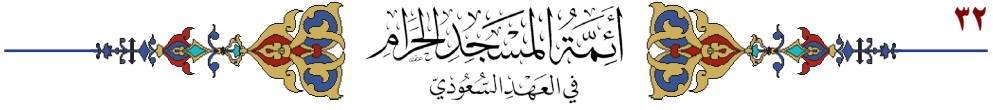 ٣٢
أَئِمَّةُ المَسْجِدِ الحَرَامِ
في العَهْدِ السُّعُودِيِّ